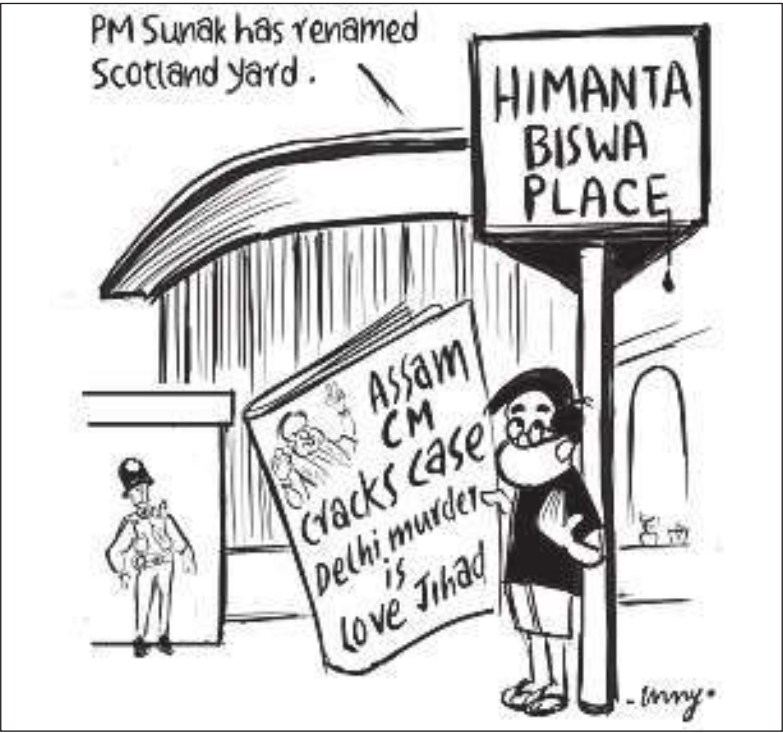 PM Sunak has renamed
Scotland Yard.
HIMANTA
BISWA
PLACE
ASSAM
CM
cracks case
Delhi murder
is
love Jihad
-unny•